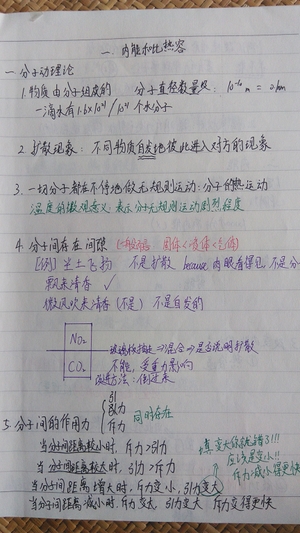 一、内能和比热容
一 分子动理论
1. 物质由分子组成的 分子直径数量级: 10⁻¹⁰m
一滴水有1.6×10²¹ 个水分子
2. 扩散现象: 不同物质自发地彼此进入对方的现象
3. 一切分子都在不停地做无规则运动: 分子的热运动
温度的微观意义: 表示分子无规则运动剧烈程度
4. 分子间存在间隙 (一般情况 固体<液体<气体)
[例] 尘土飞扬 不是扩散 because 肉眼看得见, 不是分
飘来清香 ✓
微风吹来清香 (不是) 不是自发的
NO₂
玻璃板抽走→混合→是否说明扩散
CO₂ 不能, 受重力影响
改进方法: 倒过来
5. 分子间的作用力 { 引力 斥力 同时存在
当分子间距离较小时, 斥力>引力
填变大你就错了!!!
当分子间距离较大时, 引力>斥力
应该是变小!!
当分子间距离增大时, 斥力变小, 引力变大
斥力减小得更快
当分子间距离减小时, 斥力变大, 引力变大 斥力变得更快